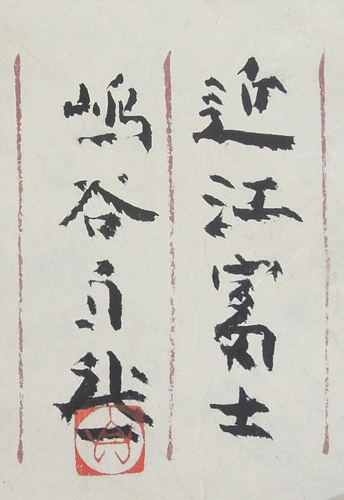 近江富士
嶋谷自然